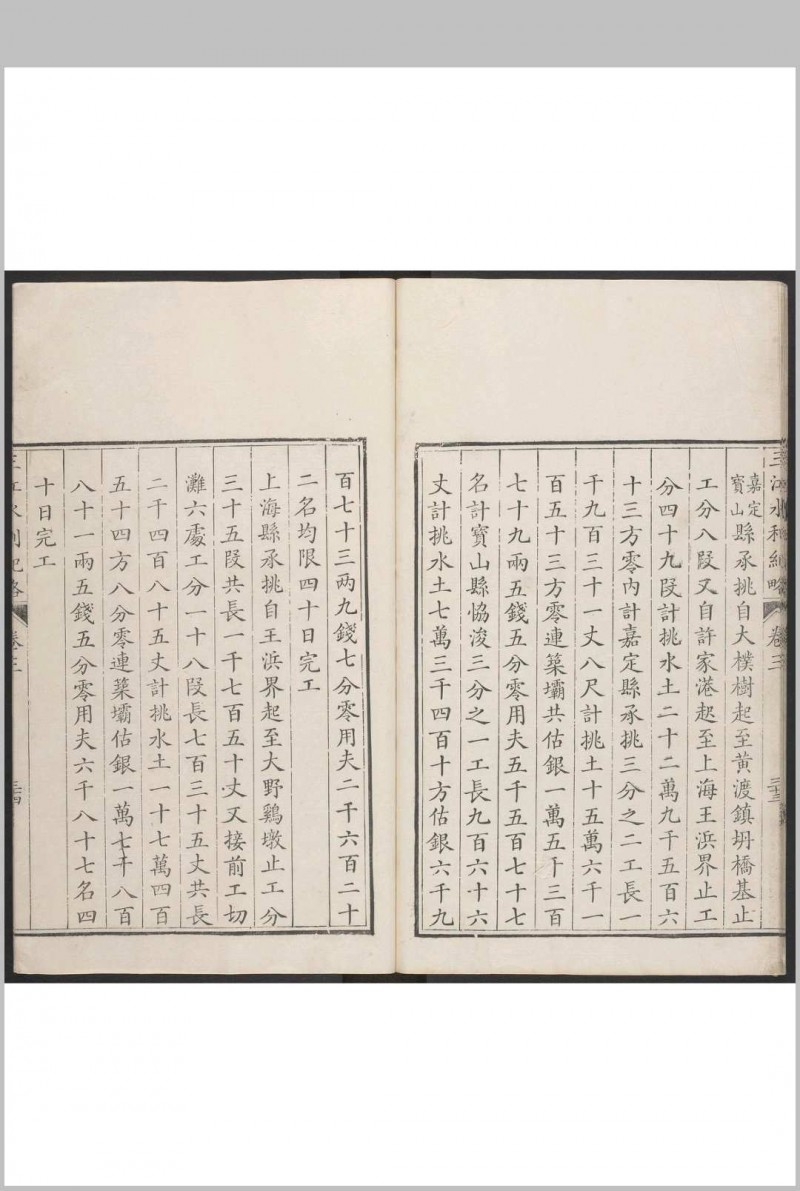 三江水利紀略 卷三 三十三
嘉定寶山縣承挑自大樸樹起至黄渡鎮坍橋基止
工分八段又自許家港起至上海王浜界止工
分四十九段計挑水土二十二萬九千五百六
十三方零内計嘉定縣承挑三分之二工長一
千九百三十一丈八尺計挑土十五萬六千一
百五十三方零連築壩共估銀一萬五千三百
七十九兩五錢五分零用夫五千五百七十七
名計寶山縣恊浚三分之一工長九百六十六
丈計挑水土七萬三千四百十方估銀六千九
百七十三两九錢七分零用夫二千六百二十
二名均限四十日完工
上海縣承挑自王浜界起至大野鷄墩止工分
三十五段共長一千七百五十丈又接前工切
灘六處工分一十八段長七百三十五丈共長
二千四百八十五丈計挑水土一十七萬四百
五十四方八分零連築壩估銀一萬七千八百
八十一兩五錢五分零用夫六千八十七名四
十日完工
三江水利紀略 卷三 三十四